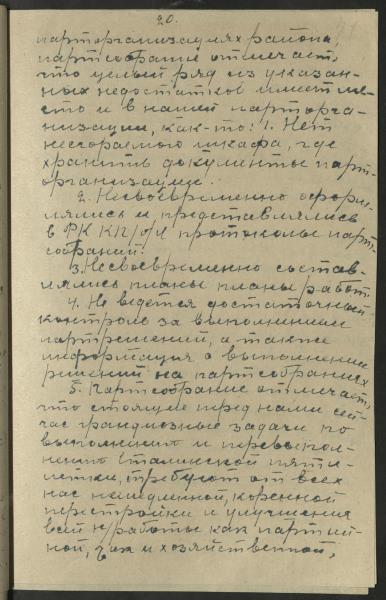 20.
парторганизациях района,
партсобрание отмечает,
что целый ряд из указан-
ных недостатков имеет ме-
сто и в нашей парторга-
низации, как-то: 1. Нет
несгораемого шкафа, где
хранить документы парт-
организации.
2. Несвоевременно оформ-
лялись и представлялись
в РК КП/б/ протоколы парт-
собраний.
3. Несвоевременно состав-
лялись планы планы работ.
4. Не ведется достаточный
контроль за выполнением
партрешений, а также
информация о выполнении
решений на партсобраниях
5. Партсобрание отмечает,
что стоящие перед нами сей-
час грандиозные задачи по
выполнению и перевыпол-
нению Сталинской пяти-
летки, требуют от всех
нас немедленной, коренной
перестройки и улучшения
всей н/работы как партий-
ной, так и хозяйственной,